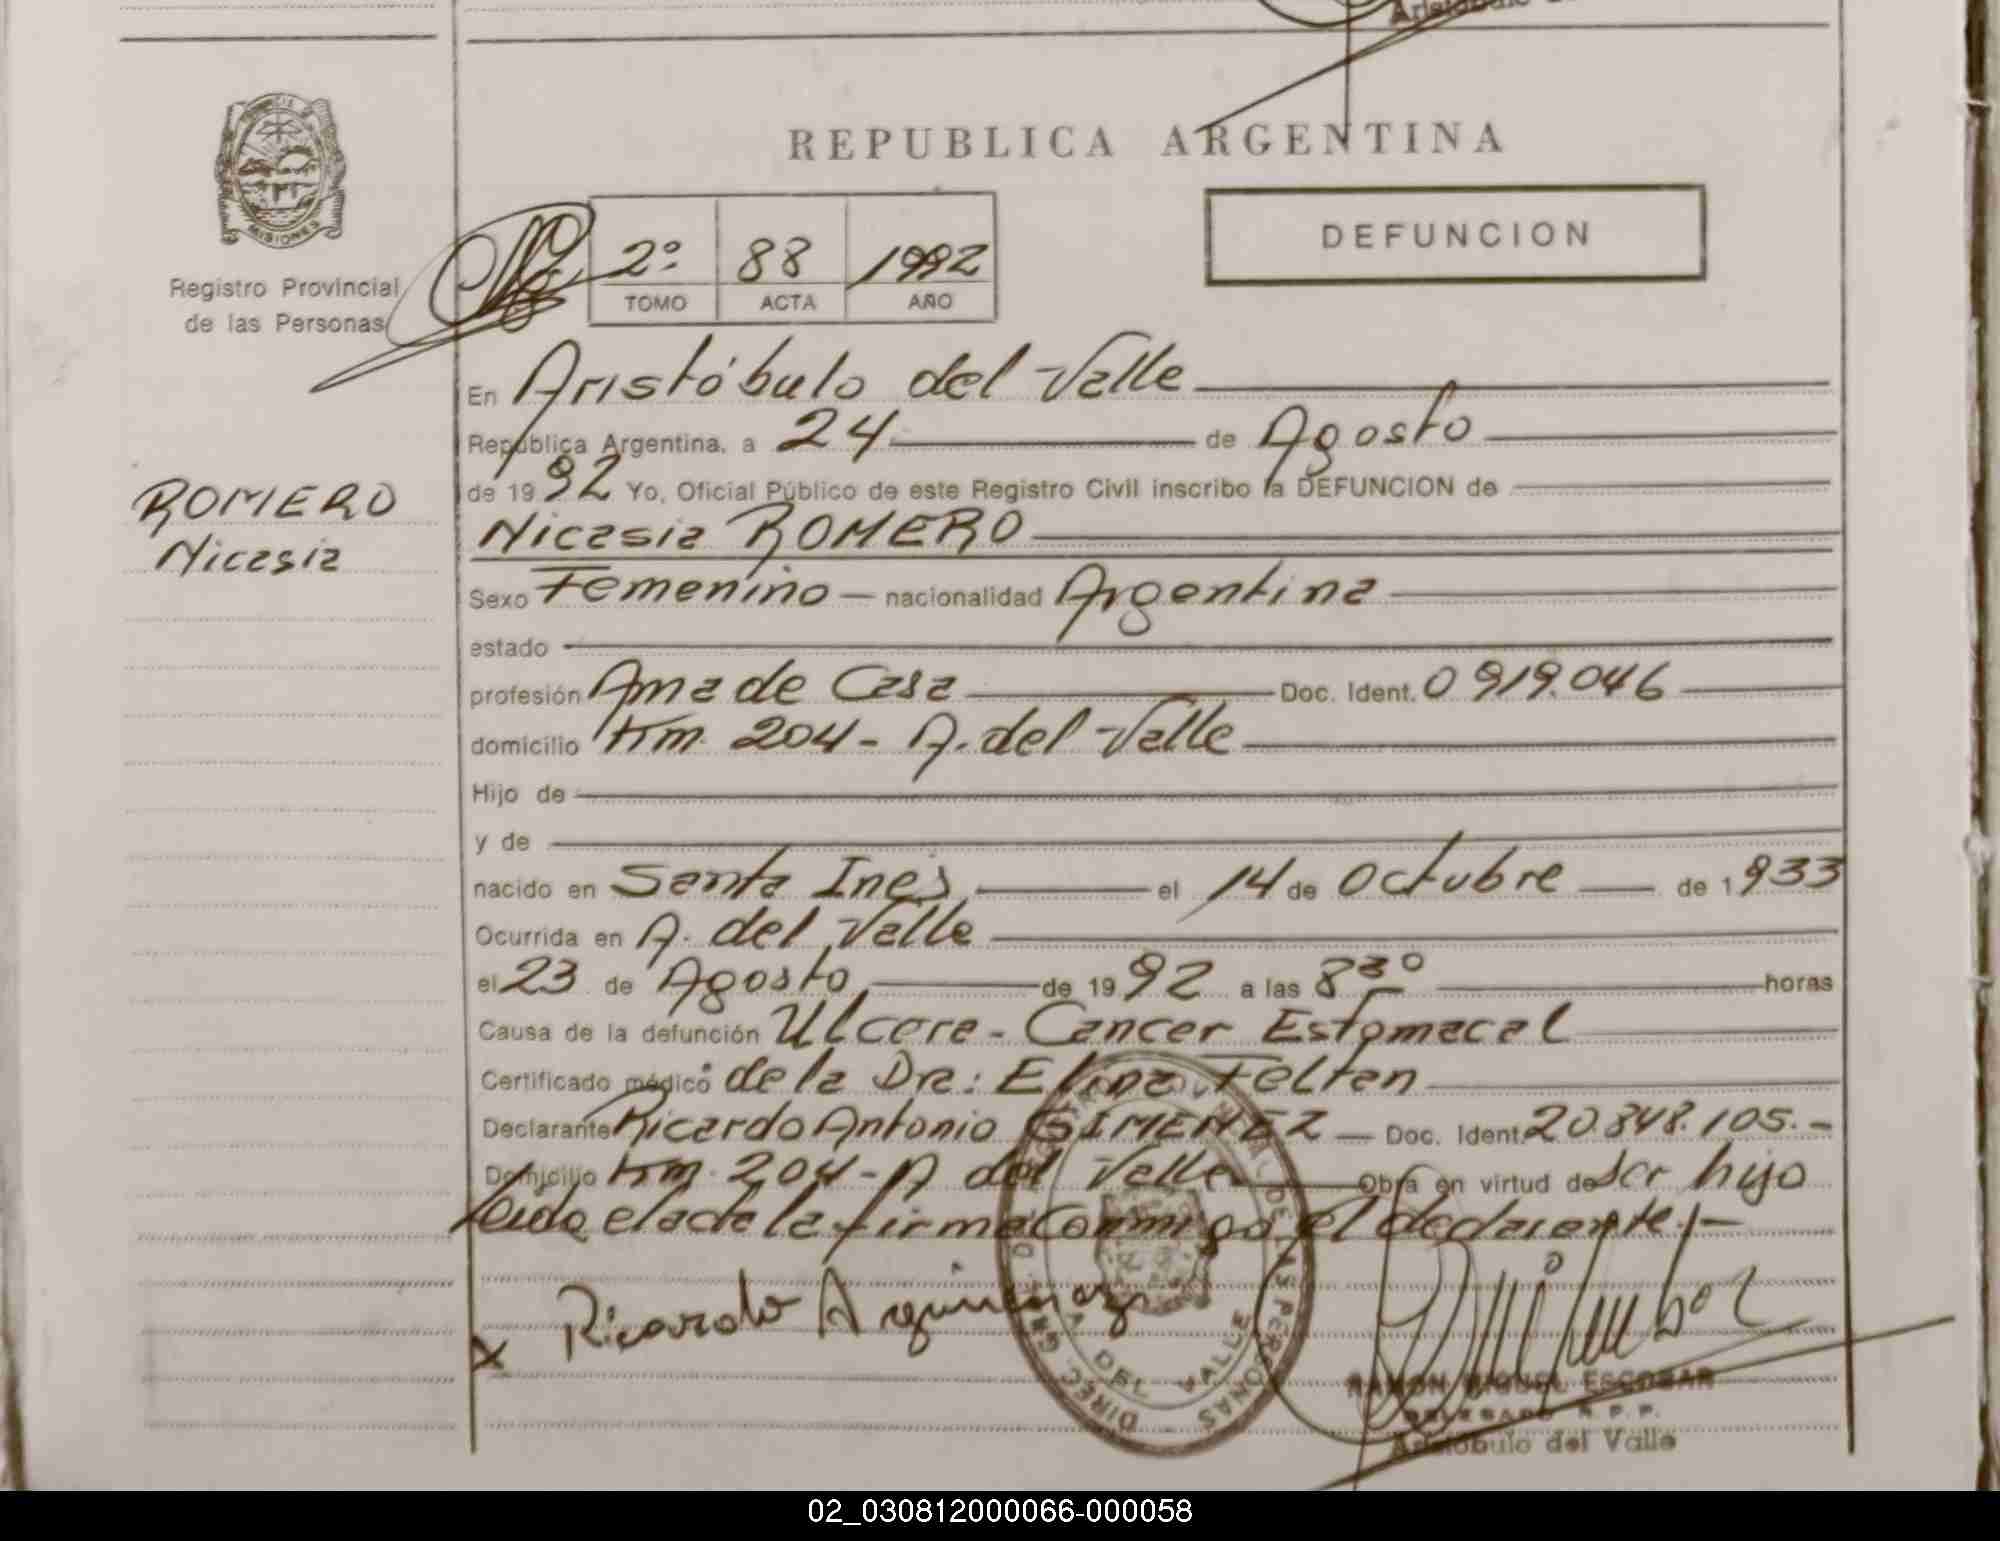 Aristóbulo
REPUBLICA ARGENTINA
MISIONES
Registro Provincial
de las Personas
2º 88 1992
TOMO ACTA AÑO
DEFUNCION
ROMERO
Nicasia
En Aristóbulo del Valle
República Argentina, a 24 de Agosto
de 1992 Yo, Oficial Público de este Registro Civil inscribo la DEFUNCION de
Nicasia ROMERO
Sexo Femenino nacionalidad Argentina
estado
profesión Ama de Casa Doc. Ident. 0919.046
domicilio Km. 204 - A. del Valle
Hijo de
y de
nacido en Santa Inés el 14 de Octubre de 1933
Ocurrida en A. del Valle
el 23 de Agosto de 1992 a las 8³⁰ horas
Causa de la defunción Ulcera - Cancer Estomacal
Certificado médico de la Dra: Elina Feltan
Declarante Ricardo Antonio GIMENEZ Doc. Ident. 20.848.105.-
Domicilio Km. 204 - A del Valle Obra en virtud de ser hijo
leida el acta la firma conmigo el declarante./-
x Ricardo A
DEL VALLE
RAMON MIGUEL ESCOBAR
DELEGADO R. P. P.
Aristóbulo del Valle
02_030812000066-000058